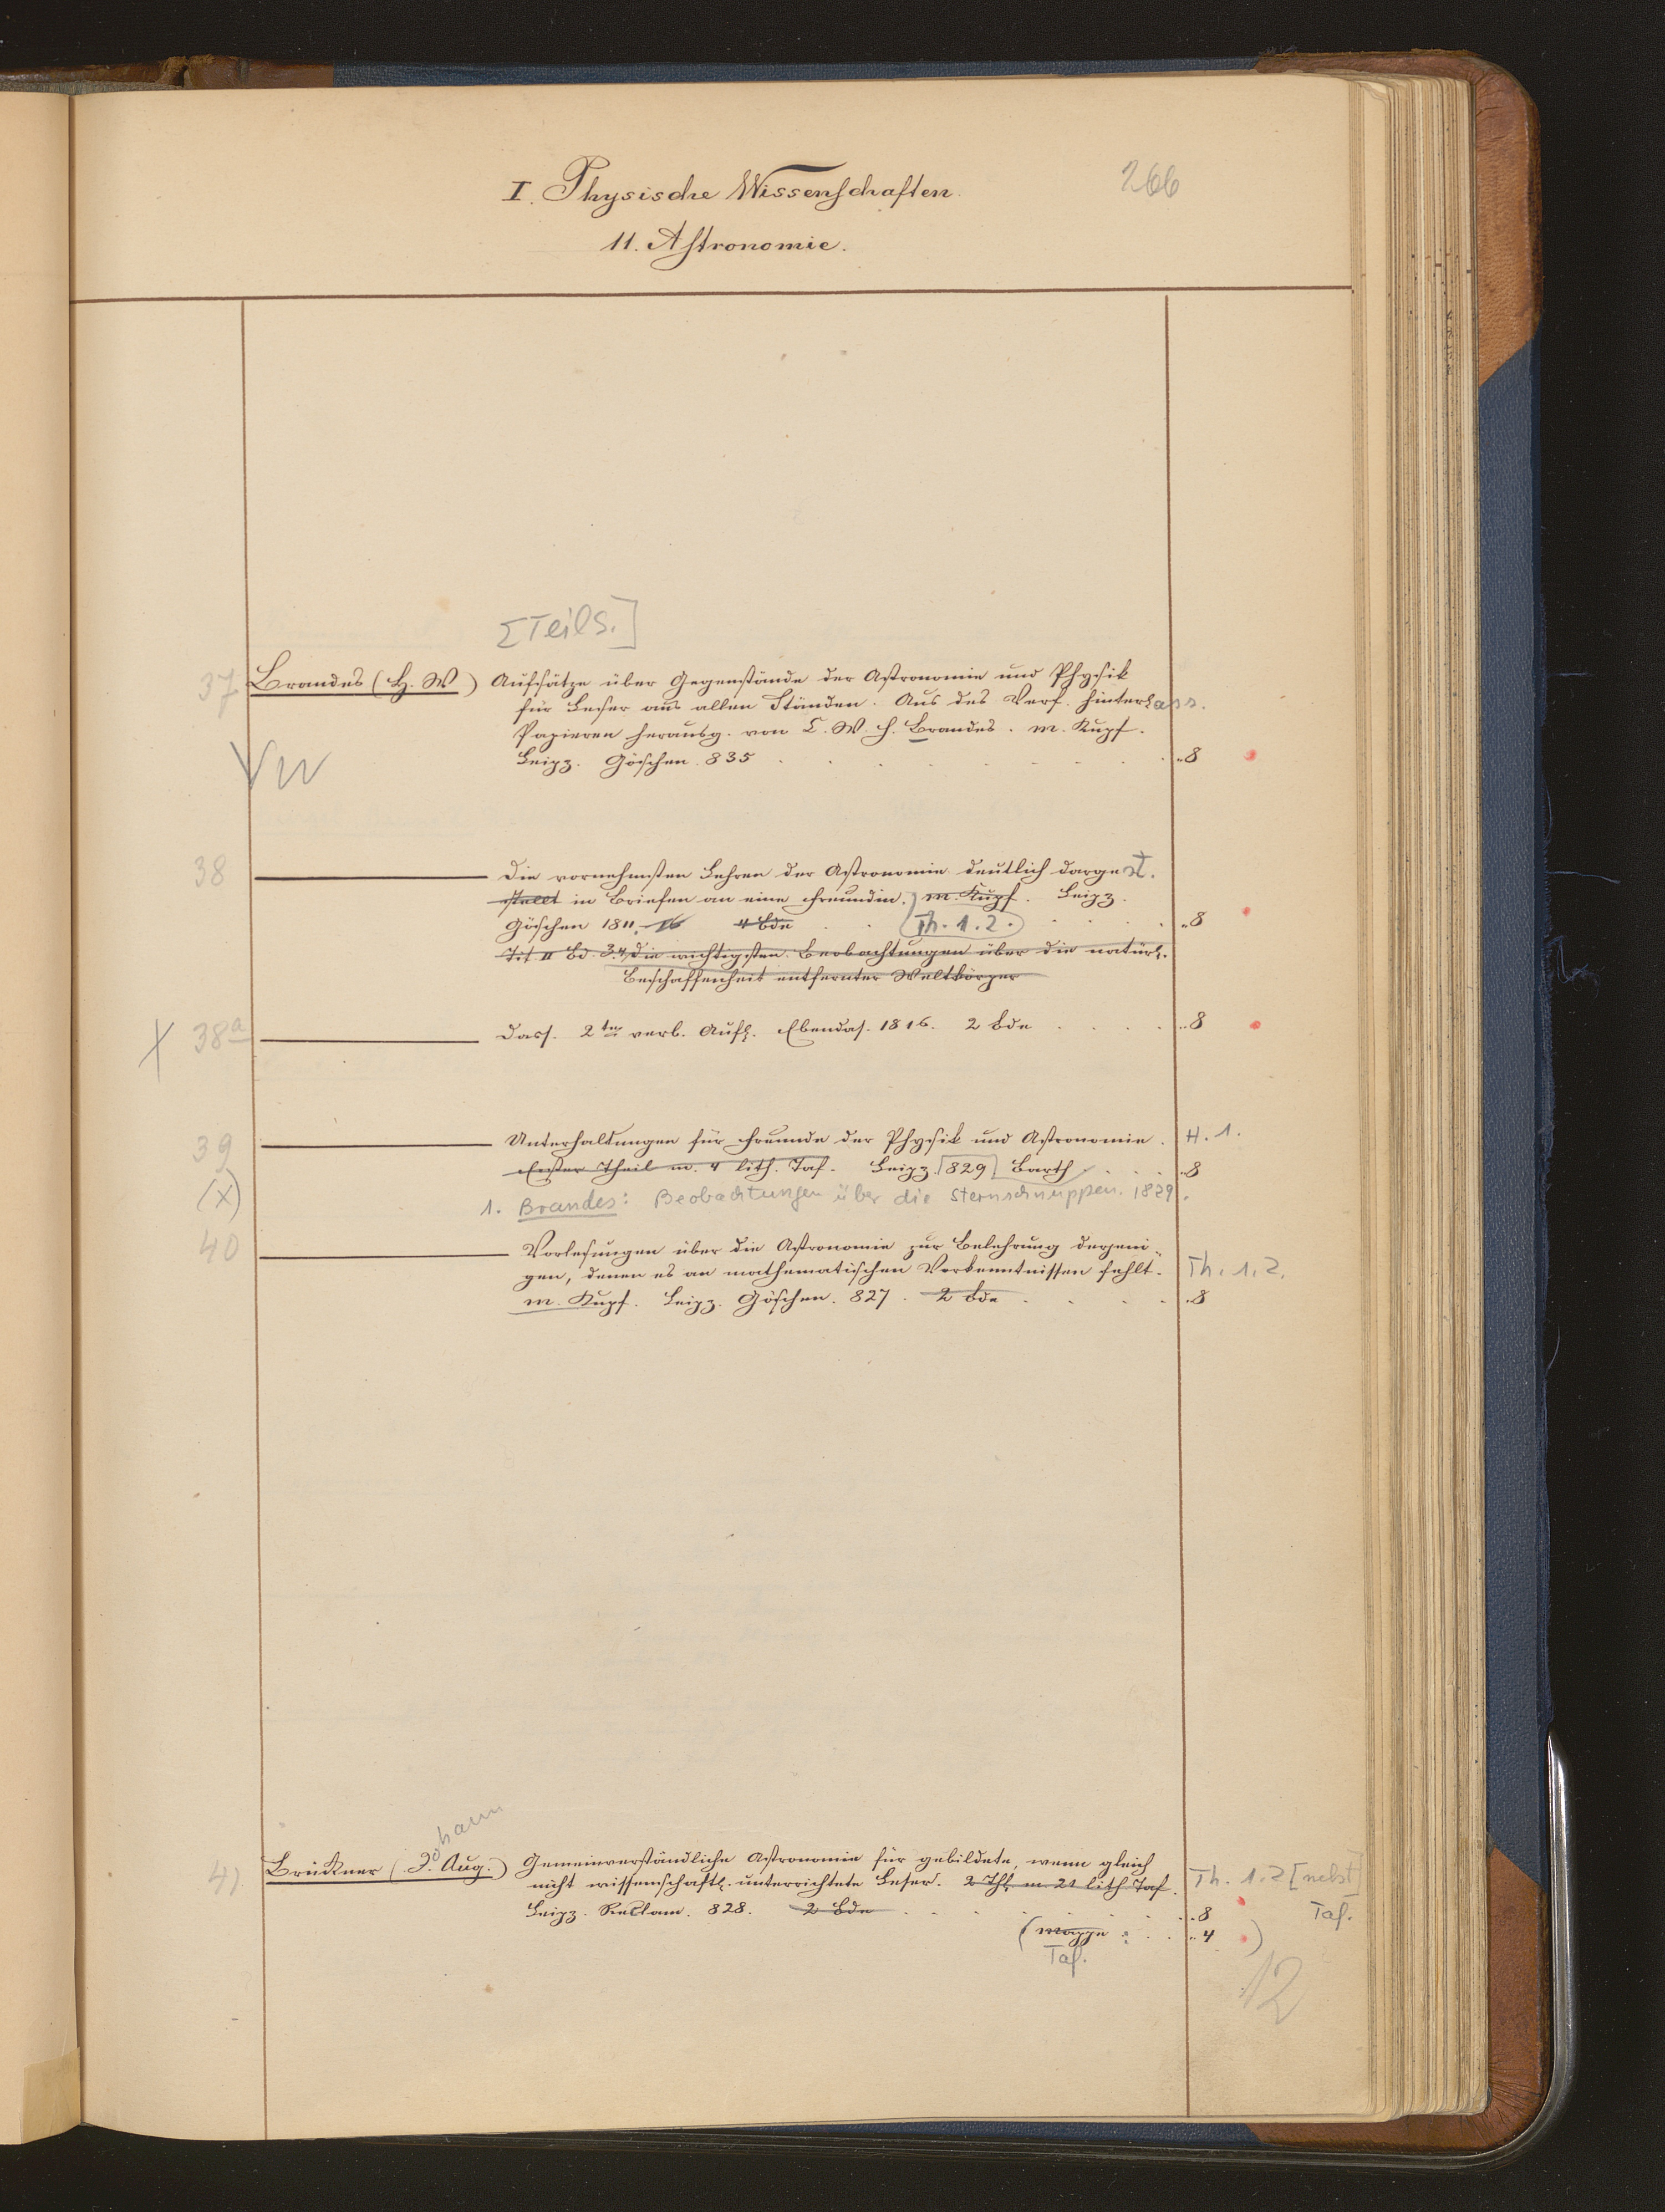 266
I. Physische Wissenschaften.
11. Astronomie.
[Teils.]
37 Brandes (H. W) Aufsätze über Gegenstände der Astronomie und Physik
für Leser aus allen Ständen. Aus des Verf. hinterlass.
Papieren herausg. von C. W. H. Brandes. m. Kupf.
Leipz. Göschen. 835 . . . . . . . . „8
38 Die vornehmsten Lehren der Astronomie deutlich dargest.
stellt in Briefen an eine Freundin. m. Kupf. Leipz.
Göschen 1811.-16 4 Bde . . (Th. 1.2.) . . . „8
Tit II Bd. 3.4, die wichtigsten Beobachtungen über die natürl.
Beschaffenheit entfernter Weltkörper
X 38a Dass. 2te verb. Aufl. Ebendas. 1816. 2 Bde . . . . „8
39 Unterhaltungen für Freunde der Physik und Astronomie. H. 1.
Erster Theil m. 4 lith. Taf. Leipz. [829] Barth . . . . „8
(X) 1. Brandes: Beobachtungen über die Sternschnuppen. 1829.
40 Vorlesungen über die Astronomie zur Belehrung derjeni„
gen, denen es an mathematischen Vorkenntnissen fehlt. Th. 1.2.
m. Kupf. Leipz. Göschen. 827. 2 Bde . . . . „8
ohann
41 Brückner (J. Aug.) Gemeinverständliche Astronomie für gebildete, wenn gleich
nicht wissenschaftl. unterrichtete Leser. 2 Thl. m. 21 lith. Taf. Th. 1.2 [nebst]
Leipz. Reclam. 828. 2 Bde . . . . . . „8 Taf.
(Mappe . . . „4 )
Taf.
12